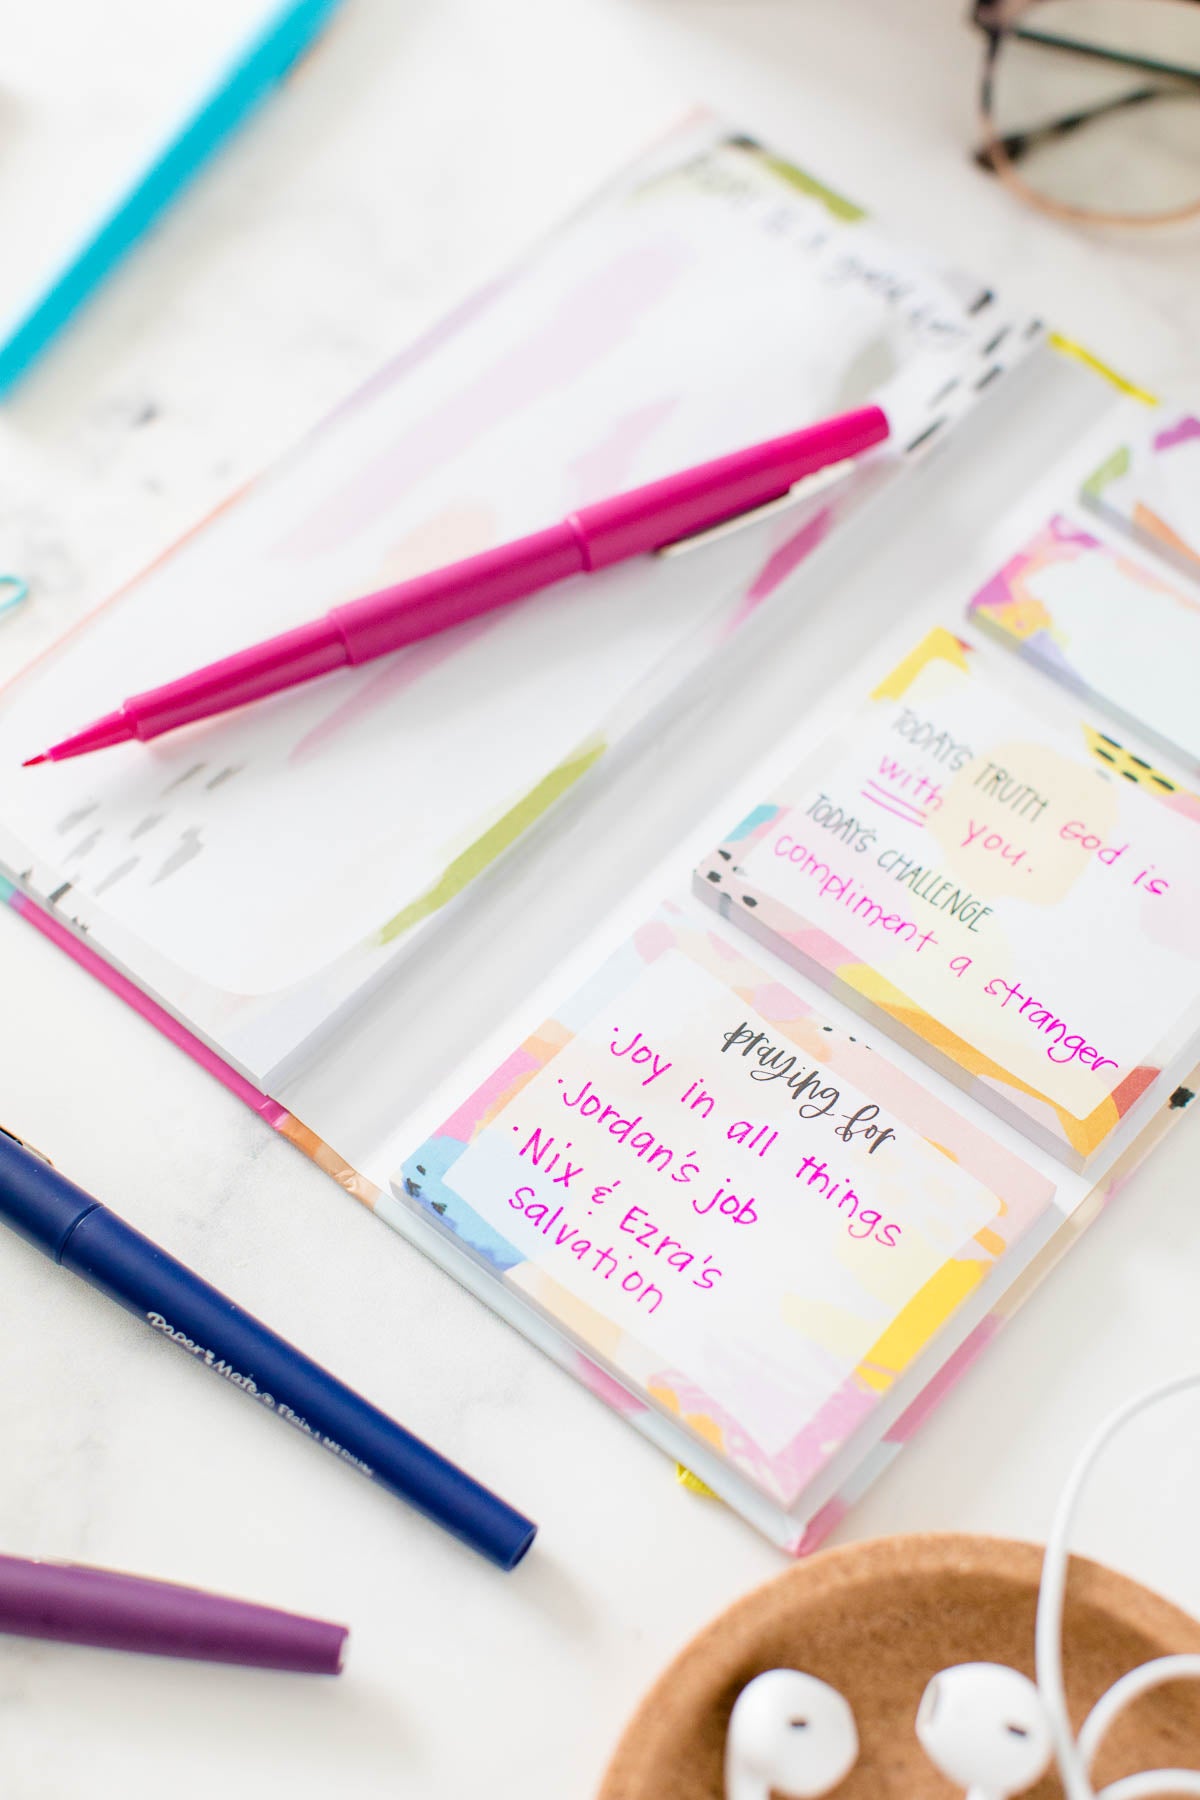 TODAY'S TRUTH God is
with you.
TODAY'S CHALLENGE
compliment a stranger
praying for
· Joy in all things
· Jordan's job
· Nix & Ezra's
salvation
Paper Mate® Flair MEDIUM